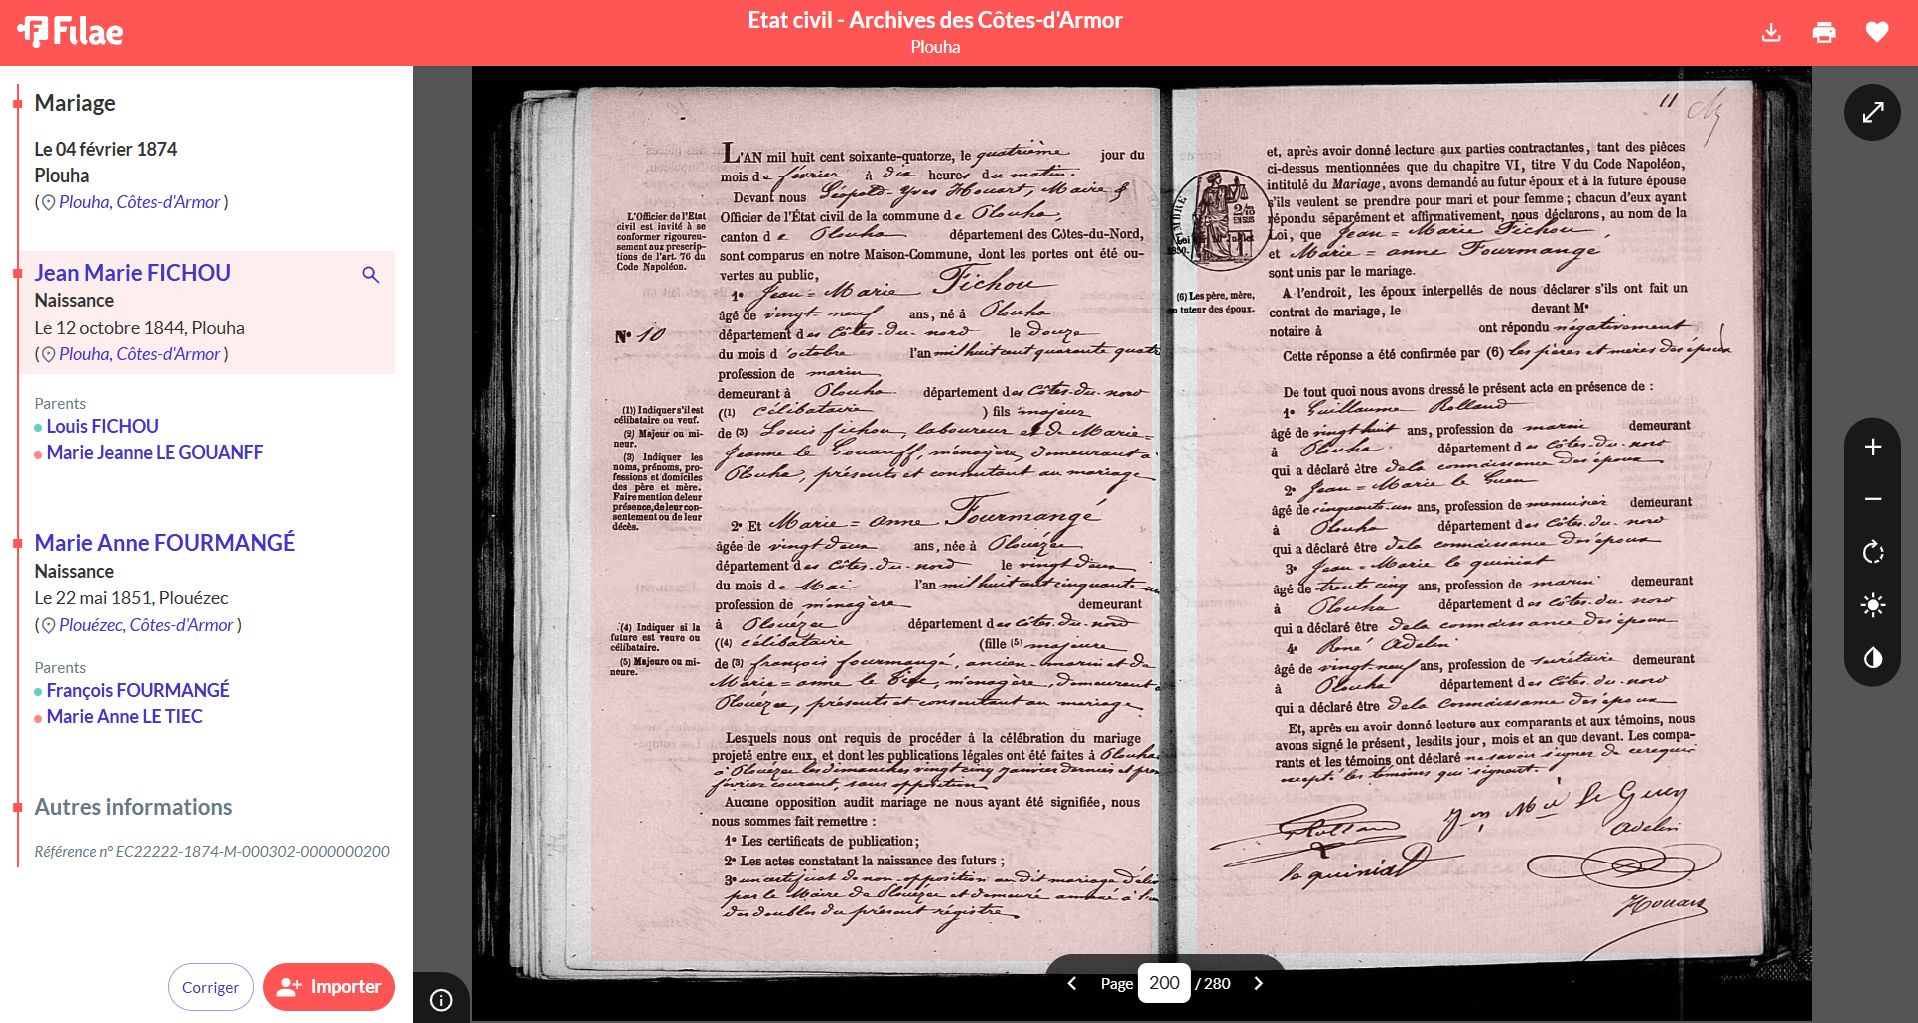 Filae
Etat civil - Archives des Côtes-d'Armor
Plouha
Mariage
Le 04 février 1874
Plouha
(Plouha, Côtes-d'Armor )
Jean Marie FICHOU
Naissance
Le 12 octobre 1844, Plouha
(Plouha, Côtes-d'Armor )
Parents
Louis FICHOU
Marie Jeanne LE GOUANFF
Marie Anne FOURMANGÉ
Naissance
Le 22 mai 1851, Plouézec
(Plouézec, Côtes-d'Armor )
Parents
François FOURMANGÉ
Marie Anne LE TIEC
Autres informations
Référence n° EC22222-1874-M-000302-0000000200
Corriger
Importer
L'AN mil huit cent soixante-quatorze, le quatrième jour du
mois de février à dix heures du matin.
Devant nous Léopold-Yves Houart, Maire &
Officier de l'État civil de la commune de Plouha,
canton de Plouha département des Côtes-du-Nord,
sont comparus en notre Maison-Commune, dont les portes ont été ou-
vertes au public,
1° Jean = Marie Fichou
âgé de vingt neuf ans, né à Plouha
département des Côtes-du-nord le douze
du mois d'octobre l'an mil huit cent quarante quatre
profession de marin
demeurant à Plouha département des Côtes-du-nord
((1) célibataire ) fils majeur
de (3) Louis fichou, laboureur et de Marie=
Jeanne le Gouanff, ménagère, demeurant à
Plouha, présents et consentant au mariage
2° Et Marie = anne Fourmangé
âgée de vingt deux ans, née à Plouézec
département des Côtes-du-nord le vingt deux
du mois de Mai l'an mil huit cent cinquante un
profession de ménagère demeurant
à Plouézec département des côtes-du-nord
((4) célibataire (fille (5) majeure
de (3) françois fourmangé, ancien marin et de
Marie = anne le Tiec, ménagère, demeurant à
Plouézec, présents et consentant au mariage
Lesquels nous ont requis de procéder à la célébration du mariage
projeté entre eux, et dont les publications légales ont été faites à Plouha
à Plouézec les dimanches vingt cinq janvier dernier et
février courant, sans opposition
Aucune opposition audit mariage ne nous ayant été signifiée, nous
nous sommes fait remettre :
1° Les certificats de publication;
2° Les actes constatant la naissance des futurs ;
3° un certificat de non-opposition au dit mariage
par le Maire de Plouézec et demeuré annexé à l'un
des doubles du présent régistre
L'Officier de l'Etat
civil est invité à se
conformer rigoureu-
sement aux prescrip-
tions de l'art. 76 du
Code Napoléon.
N° 10
(1)) Indiquer s'il est
célibataire ou veuf.
(2) Majeur ou mi-
neur.
(3) Indiquer les
noms, prénoms, pro-
fessions et domiciles
des père et mère.
Faire mention de leur
présence, de leur con-
sentement ou de leur
décès.
(4) Indiquer si la
future est veuve ou
célibataire.
(5) Majeure ou mi-
neure.
11
TIMBRE
2/10
EN SUS
et, après avoir donné lecture aux parties contractantes, tant des pièces
ci-dessus mentionnées que du chapitre VI, titre V du Code Napoléon,
intitulé du Mariage, avons demandé au futur époux et à la future épouse
s'ils veulent se prendre pour mari et pour femme ; chacun d'eux ayant
répondu séparément et affirmativement, nous déclarons, au nom de la
Loi, que Jean = Marie Fichou
et Marie = anne Fourmangé
sont unis par le mariage.
A l'endroit, les époux interpellés de nous déclarer s'ils ont fait un
contrat de mariage, le devant Me
notaire à ont répondu négativement
Cette réponse a été confirmée par (6) les pères et mères des époux
(6) Les père, mère,
ou tuteur des époux.
De tout quoi nous avons dressé le présent acte en présence de :
1° Guillaume Rolland
âgé de vingt huit ans, profession de marin demeurant
à Plouha département des côtes-du-nord
qui a déclaré être de la connaissance des époux
2° Jean = Marie le Guen
âgé de cinquante-un ans, profession de menuisier demeurant
à Plouha département des côtes-du-nord
qui a déclaré être de la connaissance des époux
3° Jean = Marie le quiniat
âgé de trente cinq ans, profession de marin demeurant
à Plouha département des côtes-du-nord
qui a déclaré être de la connaissance des époux
4° René Adelin
âgé de vingt-neuf ans, profession de secrétaire demeurant
à Plouha département des côtes-du-nord
qui a déclaré être de la connaissance des époux
Et, après en avoir donné lecture aux comparants et aux témoins, nous
avons signé le présent, lesdits jour, mois et an que devant. Les compa-
rants et les témoins ont déclaré ne savoir signer de ce requis
excepté les témoins qui signent.
Rolland
Le Guen
Adelin
le quiniat
Houart
Page 200 / 280